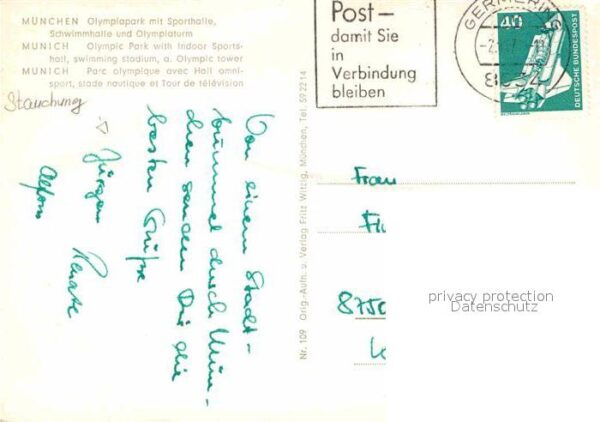 MÜNCHEN Olympiapark mit Sporthalle,
Schwimmhalle und Olympiaturm
MUNICH Olympic Park with Indoor Sports-
hall, swimming stadium, a. Olympic tower
MUNICH Parc olympique avec Hall omni-
sport, stade nautique et Tour de télévision
Stauchung
Von einem Stadt-
bummel durch Mün-
chen senden Dir die
besten Grüße
Jürgen Renate
Alfons
Nr. 109 Orig.-Aufn. u. Verlag Fritz Witzig, München, Tel. 59 22 14
Post –
damit Sie
in
Verbindung
bleiben
GERMERING
40
DEUTSCHE BUNDESPOST
Frau
8750
privacy protection
Datenschutz